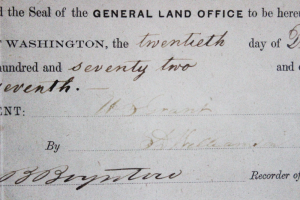 d the Seal of the GENERAL LAND OFFICE to be here
WASHINGTON, the twentieth day of
hundred and seventy two and
seventh. —
ENT: U. S. Grant
By
B Boynton Recorder of